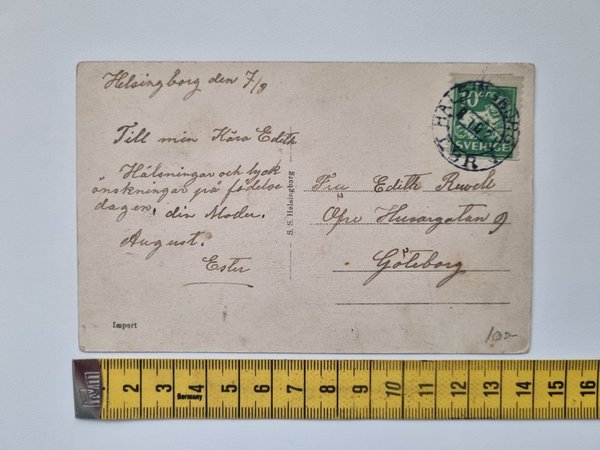 Helsingborg den 7/8
Till min Kära Edith
Hälsningar och lyck
önskningar på födelse
dagen, din Moder.
August.
Ester
S. S. Helsingborg
Import
10 ÖRE
SVERIGE
Fru Edith
Öfre Husargatan 9
Göteborg
10:-
2 3 4 5 6 7 8 9 10 11 12 13 14 15 16
Germany